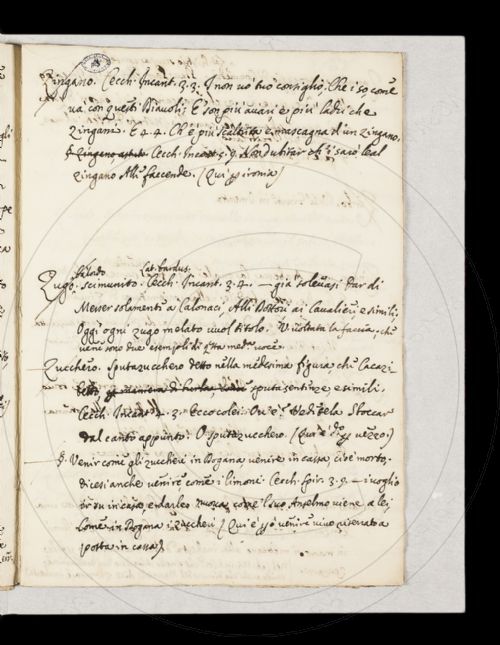 Zingano. Cecch. Incant. 3. 3. I non vo' tuo consiglio, Che i so come
va con questi Diavoli. E' son più avari e più ladri che
Zingani. E 4. 4. Ch'è più scaltrita e mascagna d'un Zingano.
Cecch. Incant. 5. 9. Non dubitar ch'i' sarò leal
Zingano alle faccende. (Qui p ironia)
balordo Lat. bardus.
Zugo. scimunito. Cecch. Incant. 3. 4. — già solevasi Dar di
Messer solamente a Calonaci Alli Dottori ai Cavalieri e simili.
Oggi ogni zugo melato vuol titolo. V. voltata la faccia, che
vene sono due esempli di qsta meda voce.
Zucchero. Sputazucchero detto nella medesima figura, che Cacazi
betto, p maniera di burla, sputasentenze, e simili.
Cecch. Incant. 4. 3. Eccocolei: Ov'è? Vedigela Sboccar
dal canto appunto: O sputazucchero (Qui è do p vezzo.)
§. Venir come gli zuccheri in Dogana venire in cassa, cioè morto,
dicesi anche venire come i limoni. Cecch. Spir. 3. 9. — i voglio
ir su in casa, e darleo nuova, come l suo Anselmo viene a lei
Come in Dogana i Zuccheri (Qui è p venire vivo riservato a
posta in cassa)